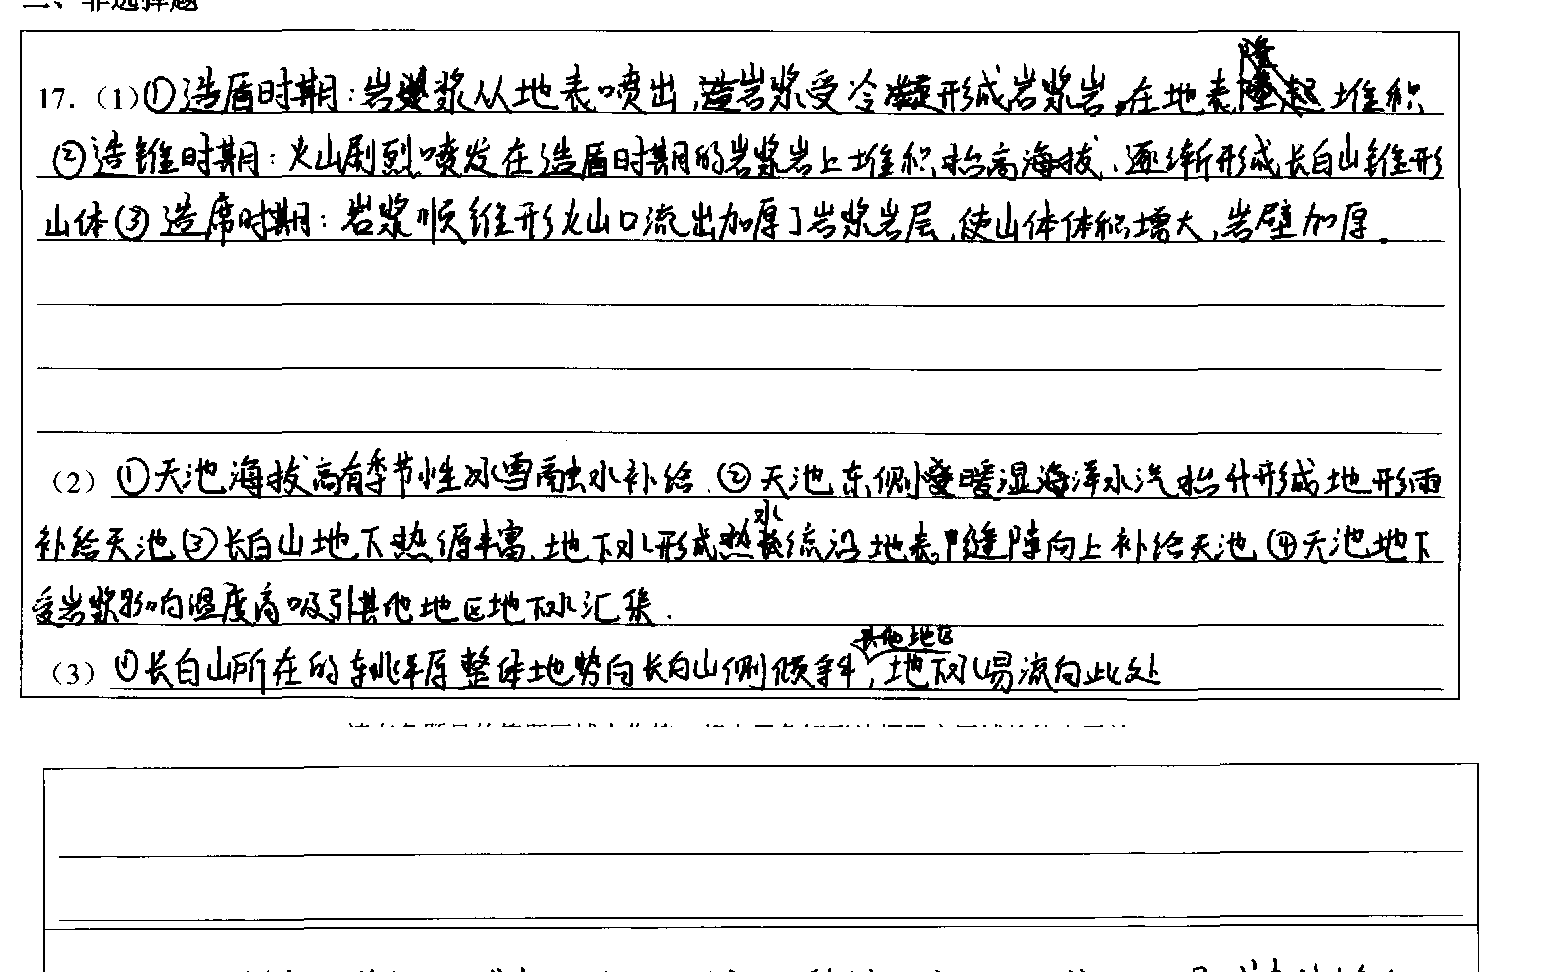 二、非选择题
17.（1）①造盾时期：岩浆从地表喷出，岩浆受冷凝形成岩浆岩，在地表隆起堆积
②造锥时期：火山剧烈喷发在造盾时期的岩浆岩上堆积抬高海拔，逐渐形成长白山锥形
山体③造席时期：岩浆顺锥形火山口流出加厚了岩浆岩层，使山体体积增大，岩壁加厚。
（2）①天池海拔高有季节性冰雪融水补给．②天池东侧受暖湿海洋水汽抬升形成地形雨
补给天池③长白山地下热源丰富，地下水形成热水流沿地表缝隙向上补给天池④天池地下
受岩浆影响温度高吸引其他地区地下水汇集．
（3）①长白山所在的东北平原整体地势向长白山侧倾斜，其他地区地下水易流向此处